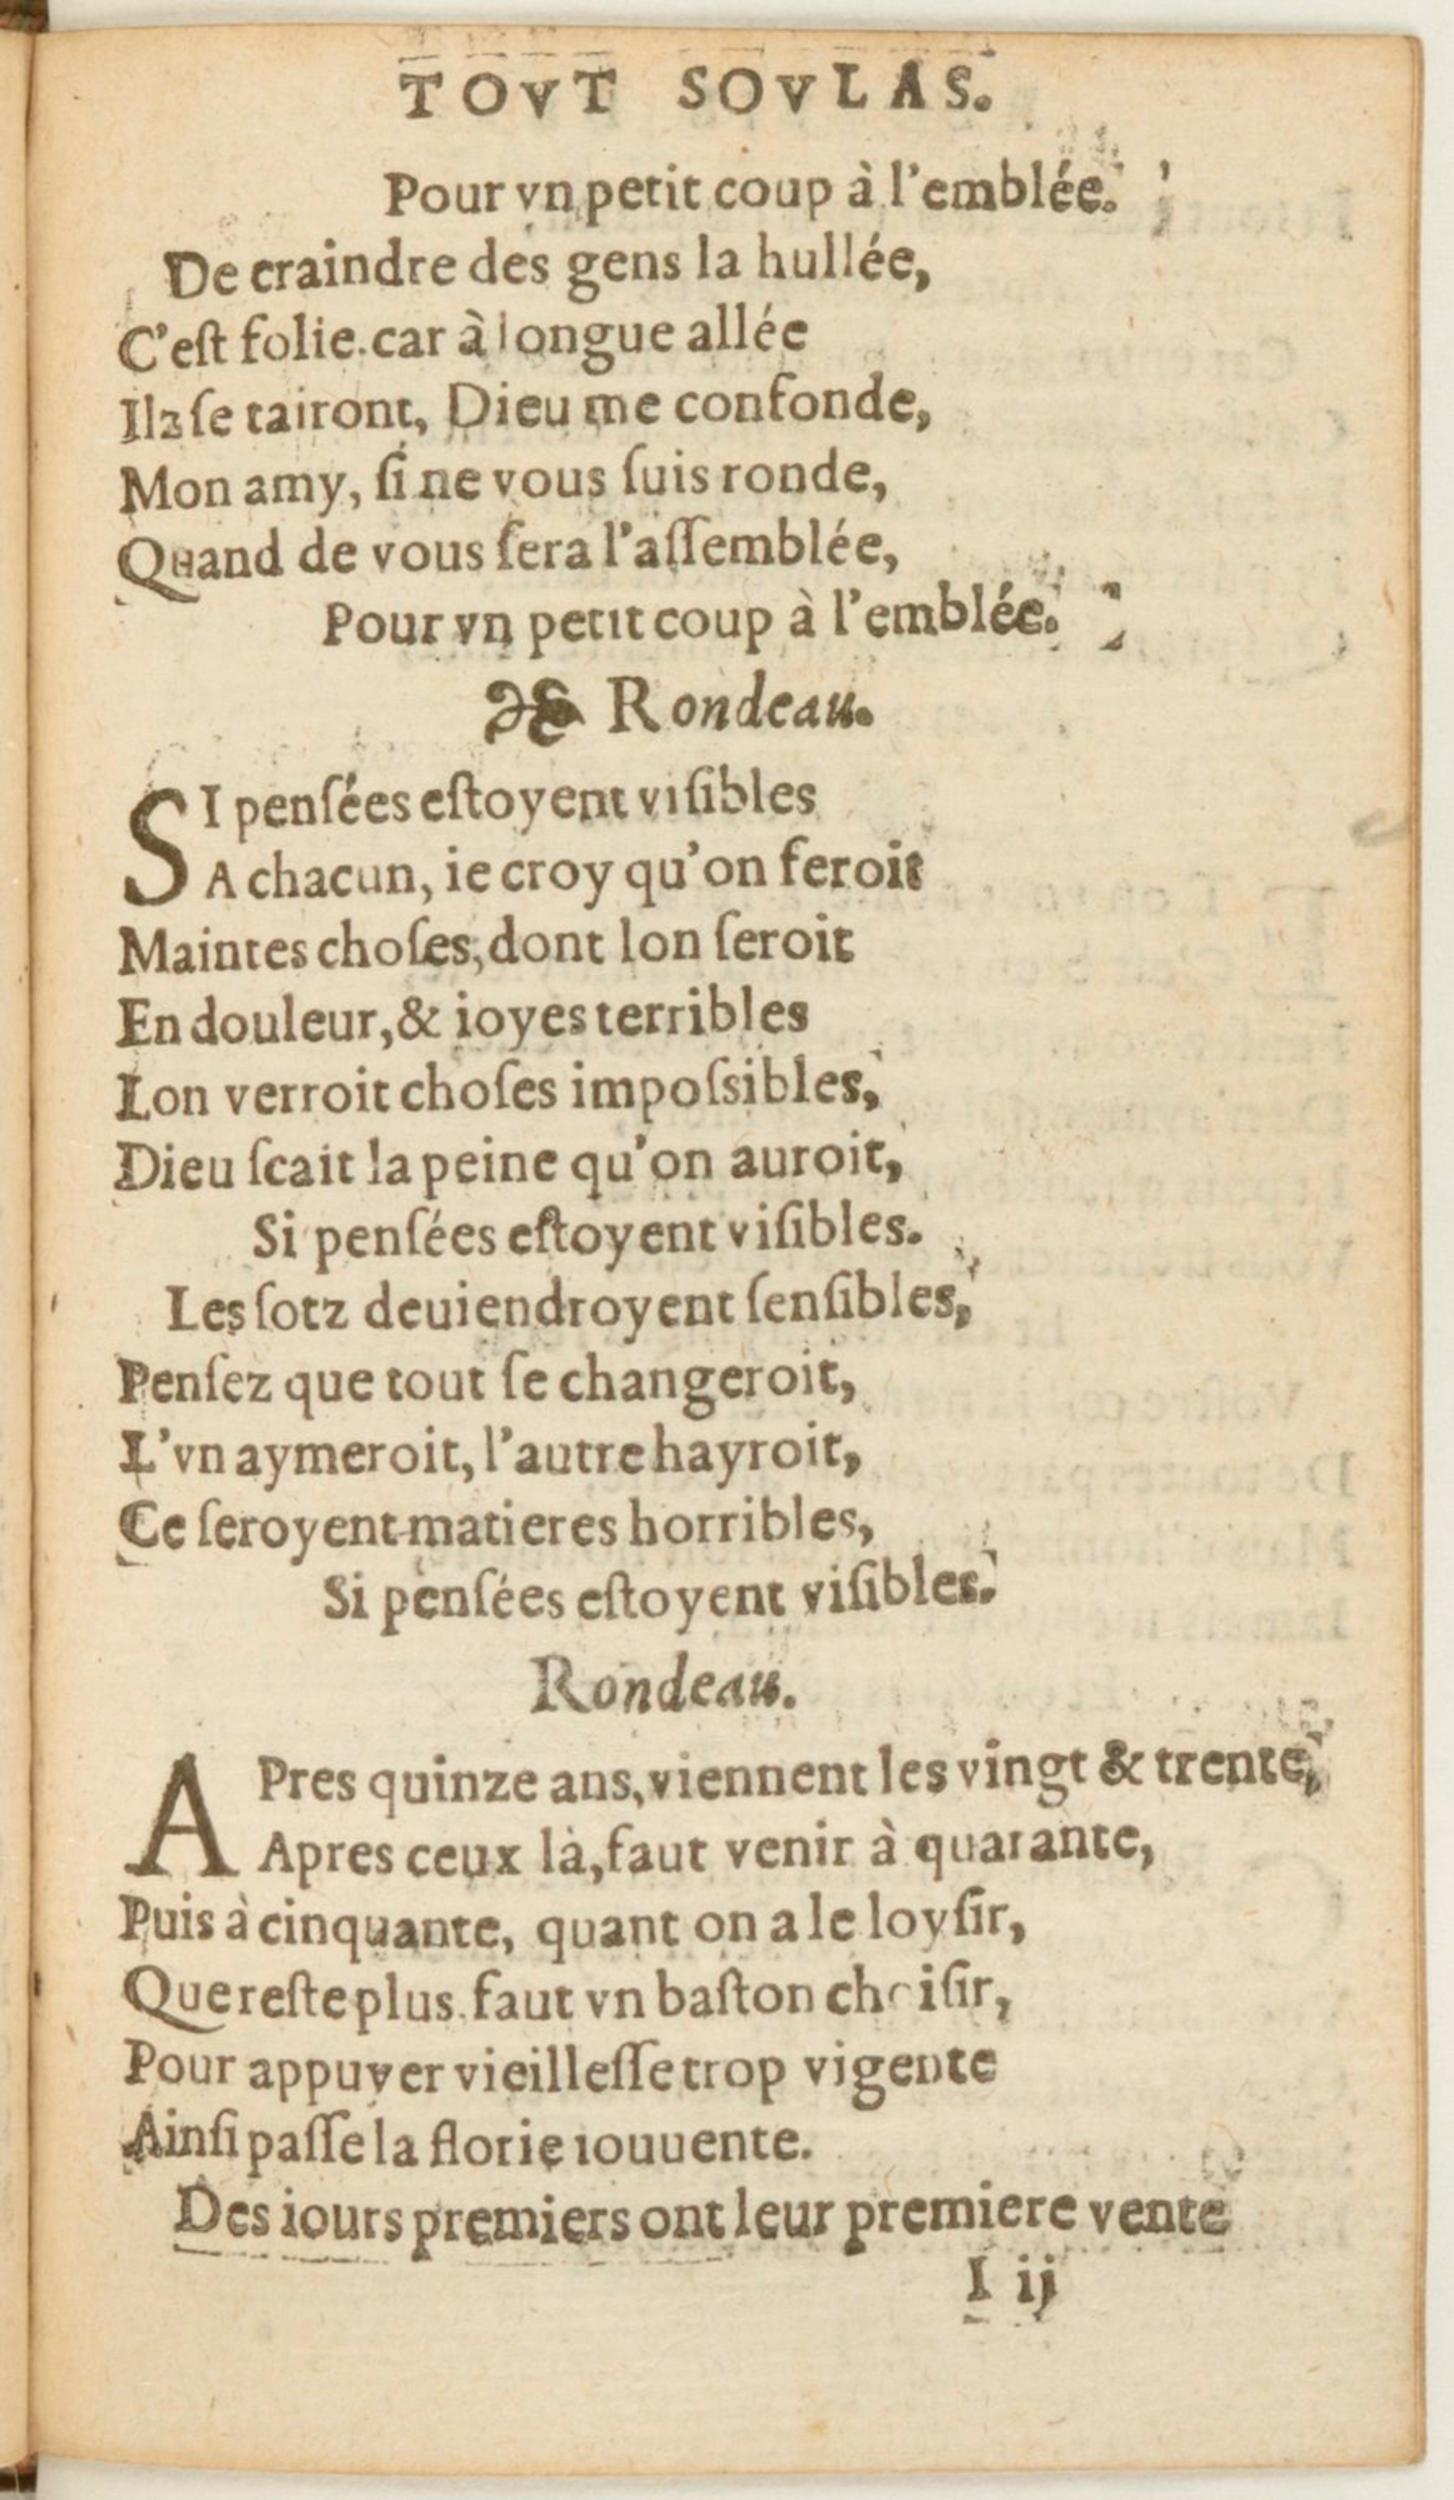 TOVT SOVLAS.
Pour vn petit coup à l'emblée.
De craindre des gens la hullée,
C'eſt folie. car à longue allée
Ilz ſe tairont, Dieu me confonde,
Mon amy, ſi ne vous ſuis ronde,
Quand de vous ſera l'aſſemblée,
Pour vn petit coup à l'emblée.
Rondeau.
SI penſées eſtoyent viſibles
A chacun, ie croy qu'on feroit
Maintes choſes, dont lon ſeroit
En douleur, & ioyes terribles
Lon verroit choſes impoſsibles,
Dieu ſcait la peine qu'on auroit,
Si penſées eſtoyent viſibles.
Les ſotz deuiendroyent ſenſibles,
Penſez que tout ſe changeroit,
L'vn aymeroit, l'autre hayroit,
Ce ſeroyent matieres horribles,
Si penſées eſtoyent viſibles.
Rondeau.
APres quinze ans, viennent les vingt & trente,
Apres ceux là, faut venir à quarante,
Puis à cinquante, quant on a le loyſir,
Que reſte plus. faut vn baſton choiſir,
Pour appuyer vieilleſſe trop vigente
Ainſi paſſe la florie iouuente.
Des iours premiers ont leur premiere vente
I ij